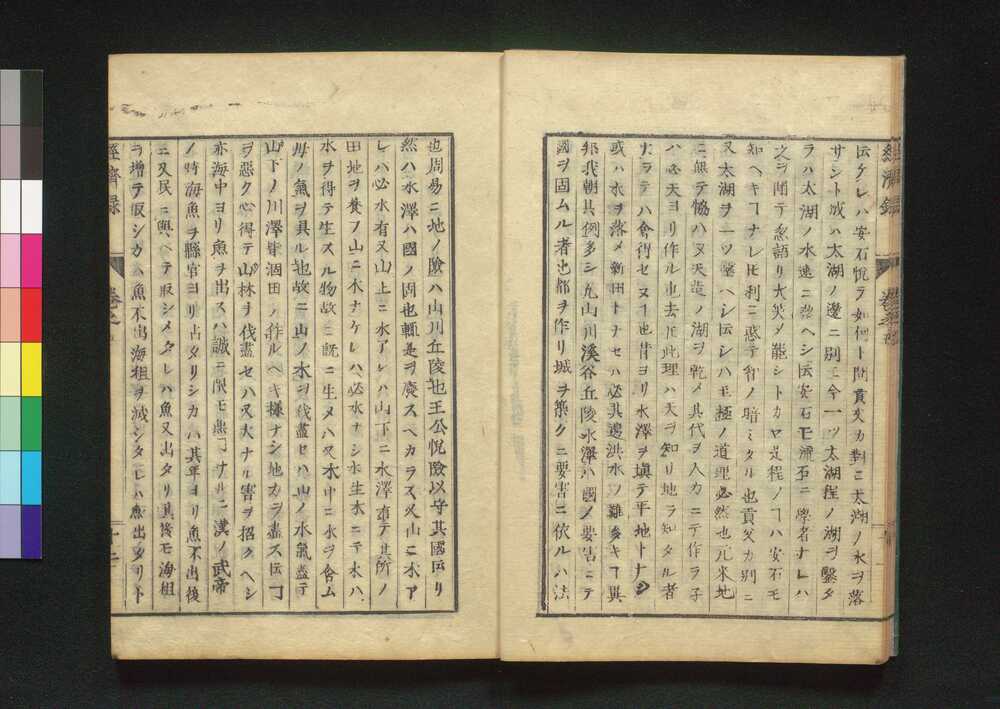 伝ケレハ安石悦ラ如何ト問貢父カ対ニ太湖ノ水ヲ落
サント成ハ太湖ノ邊ニ別ニ今一ツ太湖程ノ湖ヲ鑿タ
ラハ太湖ノ水速ニ落ヘシ云安石モ流石ニ學者ナレハ
之ヲ聞テ忽語リ大笑メ罷シトカヤ是程ノヿハ安石モ
知ヘキヿナレ𪜈利ニ惑テ智ノ暗ミタル也貢父カ別ニ
又太湖ヲ一ツ鑿ヘシ伝シハ至極ノ道理必然也元来地
ニ無テ恊ハヌ天造ノ湖ヲ乾メ其代ヲ人力ニテ作ラ子
ハ必天ヨリ作ル也去𪜈此理ハ天ヲ知リ地ヲ知タル者
ナラテハ會得セヌヿ也昔ヨリ水澤ヲ填テ平地トナシ
或ハ水ヲ落メ新田トナセハ必其邊洪水ノ難多キヿ異
邦我朝其例多シ凡山川溪谷丘陵水澤ハ國ノ要害ニテ
國ヲ固ムル者也都ヲ作リ城ヲ築クニ要害ニ依ルハ法
也周易ニ地ノ險ハ山川丘陵也王公悦險以守其國云リ
然ハ水澤ハ國ノ固也輙是ヲ廢スヘカラス又山ニ木ア
レハ必水有又山上ニ水アレハ山下ニ水澤有テ其所ノ
田地ヲ養フ山ニ木ナケレハ必水ナシ水生木ニテ木ハ
水ヲ得テ生スル物故ニ既ニ生メハ又木中ニ水ヲ含ム
母ノ氣ヲ具ル也故ニ山ノ木ヲ伐盡セハ山ノ水氣盡テ
山下ノ川澤皆涸田ノ作ルヘキ様ナシ地力ヲ盡ス云ヿ
ヲ惡ク心得テ山林ヲ伐盡セハ又大ナル害ヲ招クヘシ
亦海中ヨリ魚ヲ出スハ誠ニ限モ無ヿナルニ漢ノ武帝
ノ時海魚ヲ縣官ヨリ占タリシカハ其年ヨリ魚不出後
ニ又民ニ與ヘテ取シメタレハ魚又出タリ其後モ海租
ヲ増テ取シカハ魚不出海租ヲ減シタレハ魚出タリト
經濟録